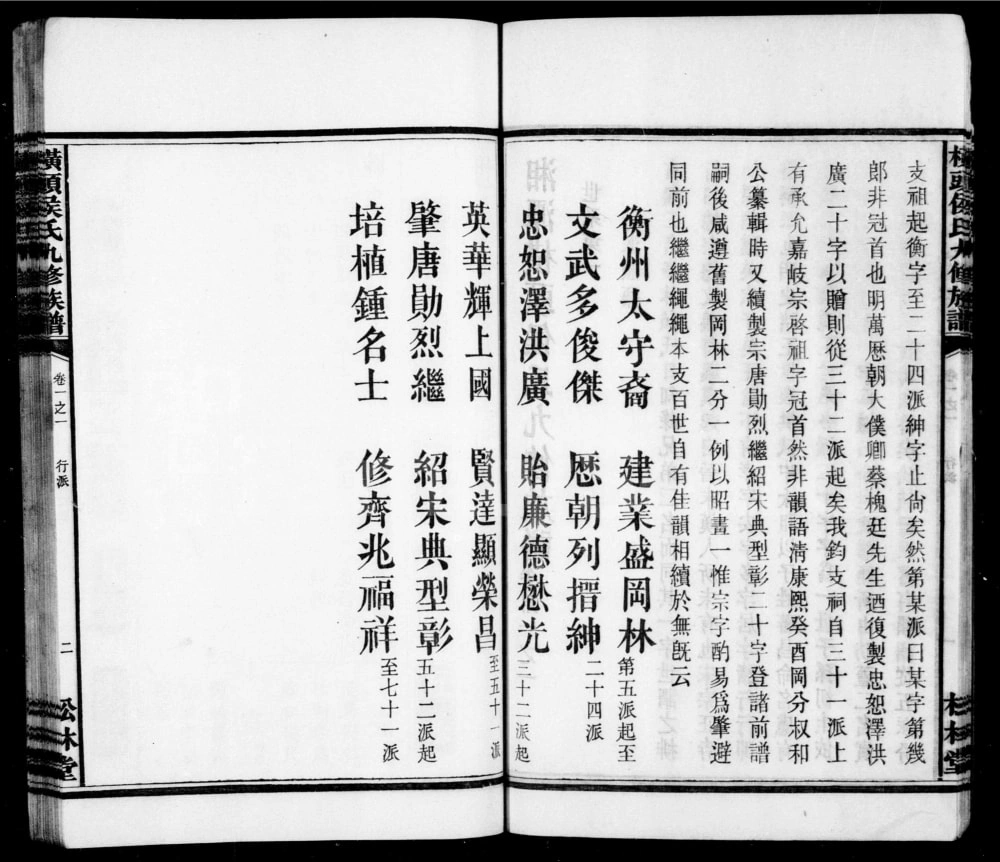 支祖起衡字至二十四派紳字止尙矣然第某派曰某字第幾
郎非冠首也明萬歴朝大僕卿蔡槐廷先生迺復製忠恕澤洪
廣二十字以贈則從三十二派起矣我鈞支祠自三十一派上
有承允嘉岐宗啓祖字冠首然非韻語淸康熙癸酉岡分叔和
公纂輯時又續製宗唐勛烈繼紹宋典型彰二十字登諸前譜
嗣後咸遵舊製岡林二分一例以昭畫一惟宗字酌易爲肇避
同前也繼繼繩繩本支百世自有佳韻相續於無旣云
衡州太守裔 建業盛岡林 第五派起至
文武多俊傑 歴朝列搢紳 二十四派
忠恕澤洪廣 貽廉德懋光 三十二派起
英華輝上國 賢達顯榮昌 至五十一派
肇唐勛烈繼 紹宋典型彰 五十二派起
培植鍾名士 修齊兆福祥 至七十一派
橫頭侯氏九修族譜 卷一之一 行派 二 松林堂